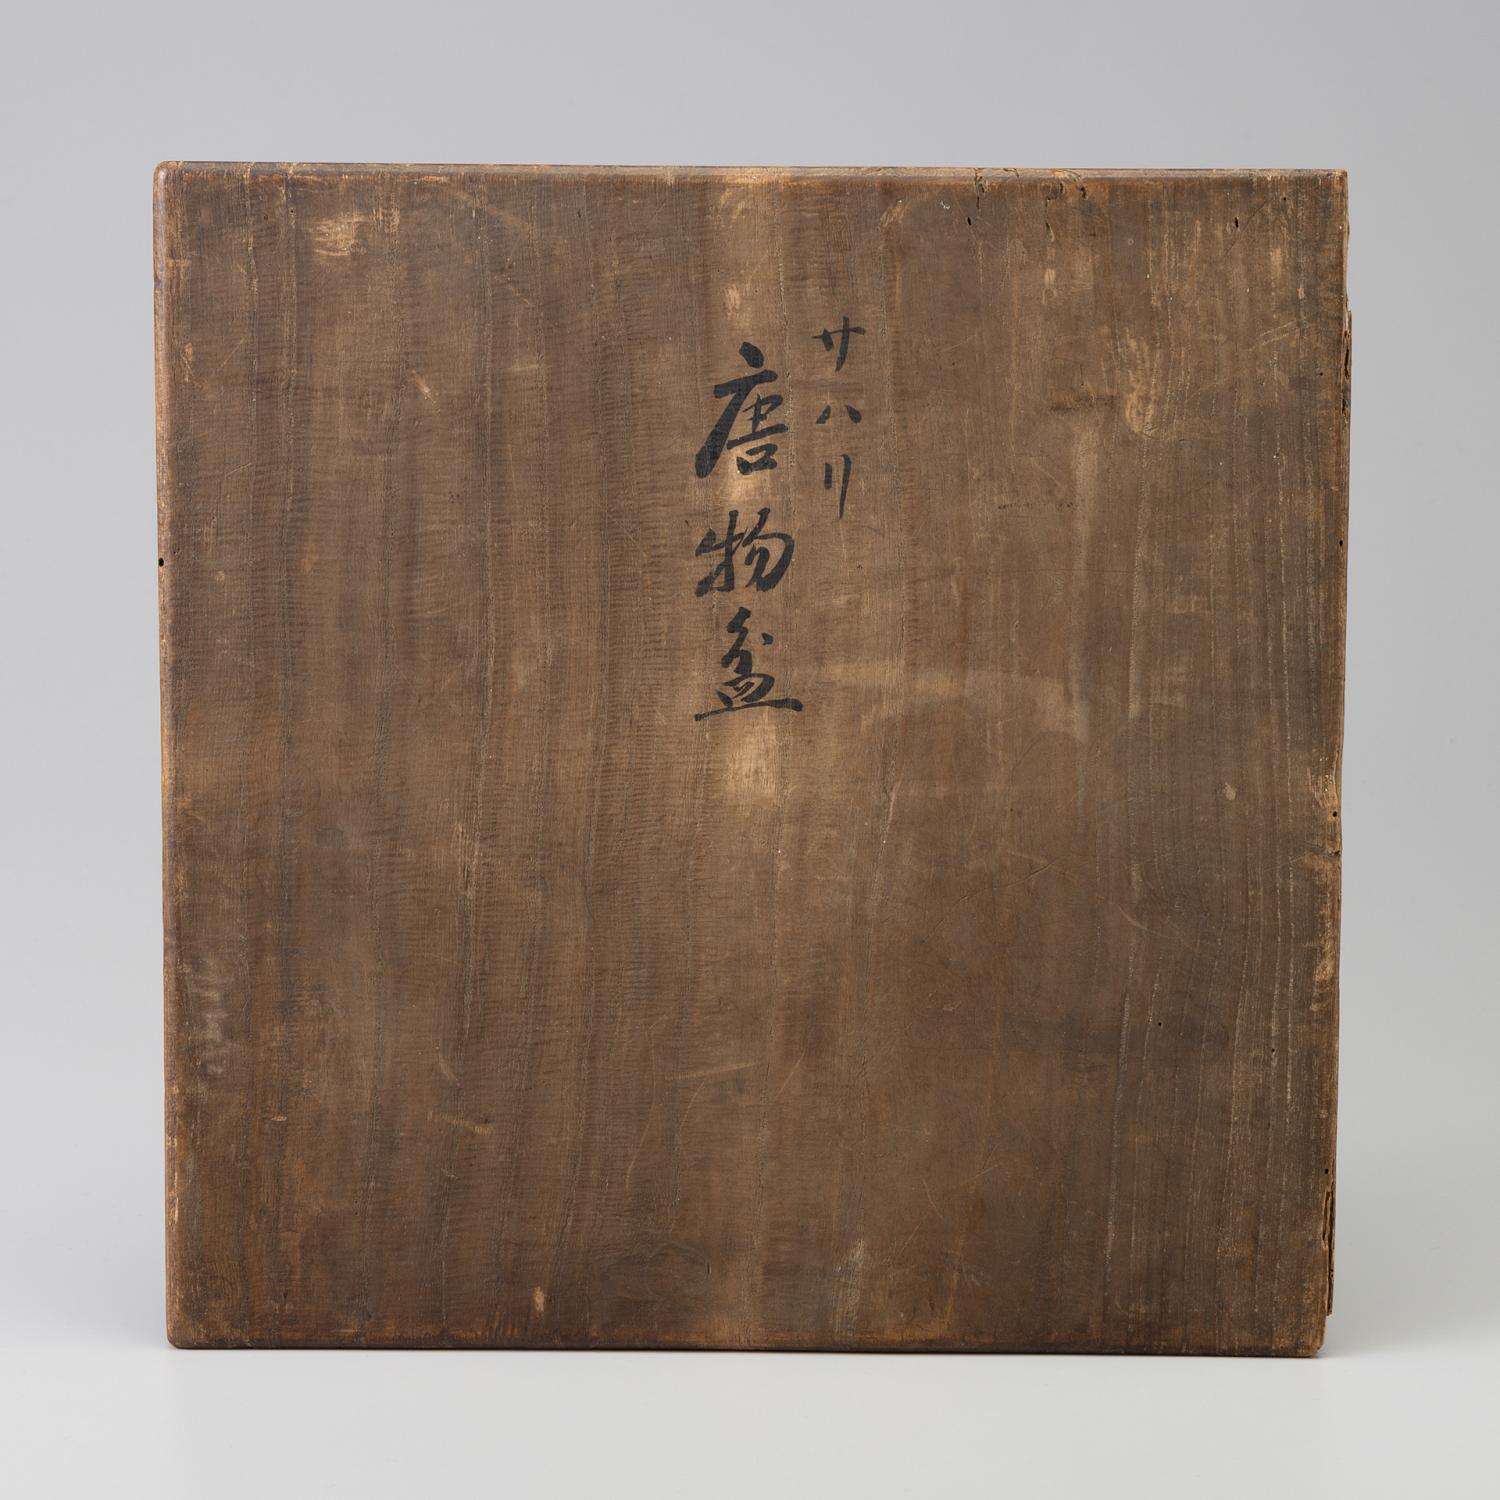 サハリ
唐物盆